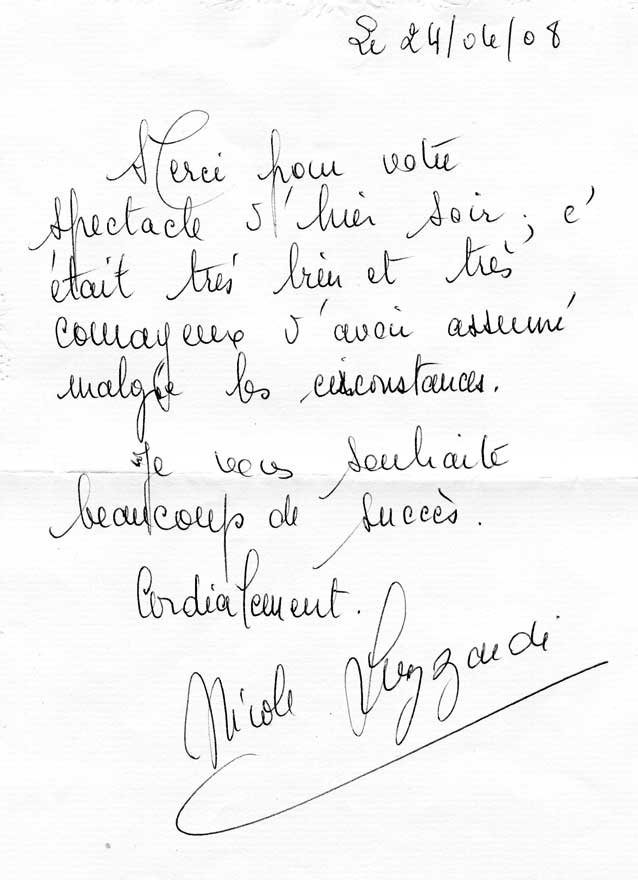 Le 24/04/08
Merci pour votre
spectacle d'hier soir ; c'
était très bien et très
courageux d'avoir assumé
malgré les circonstances.
Je vous souhaite
beaucoup de succès.
Cordialement.
Nicole